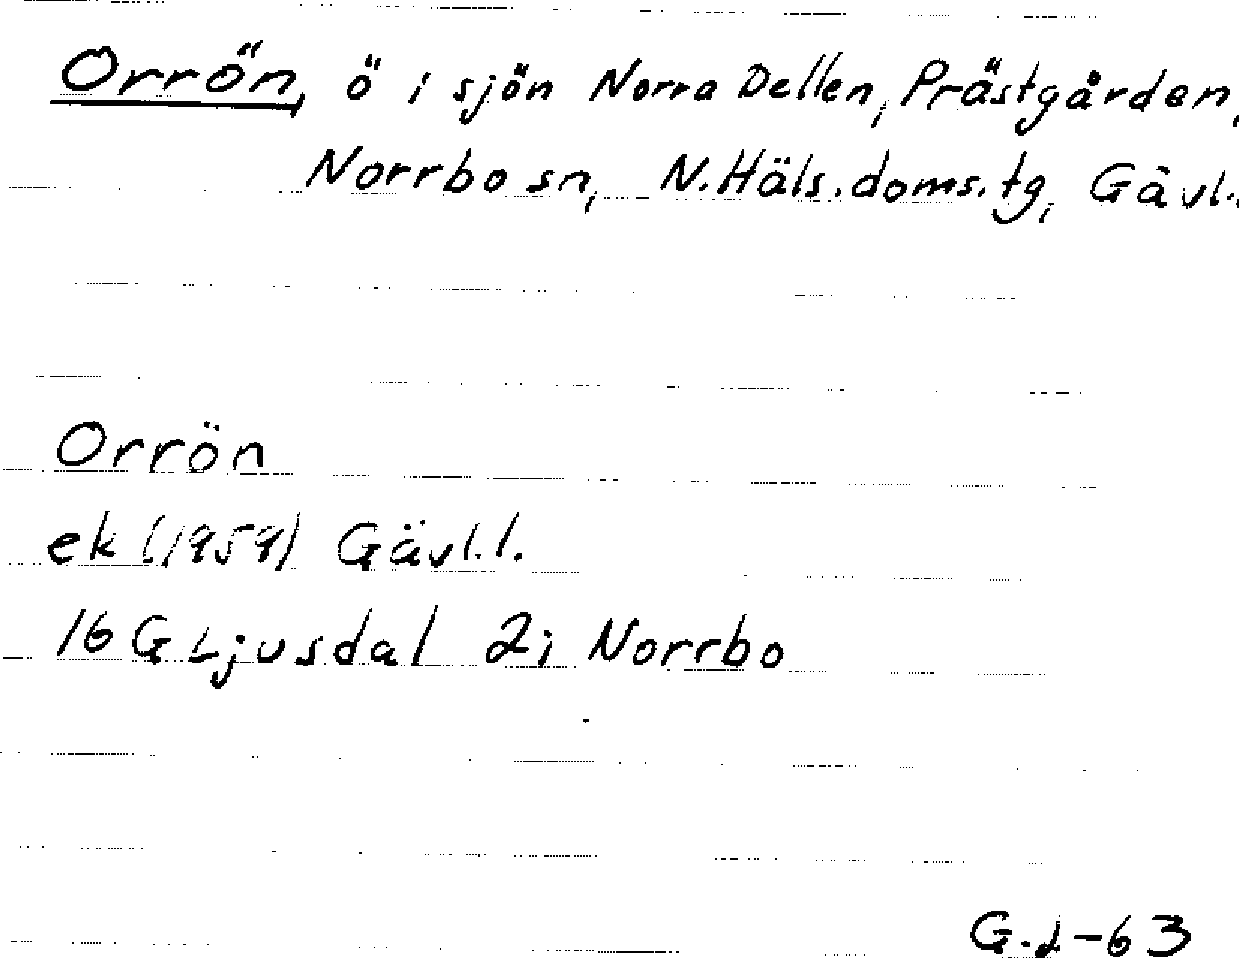 Orrön, ö i sjön Norra Dellen, Prästgården,
Norrbo sn, N.Häls.doms.tg, Gävl.
Orrön
ek (1959) Gävl.l.
16 G Ljusdal 2i Norrbo
G.L-63